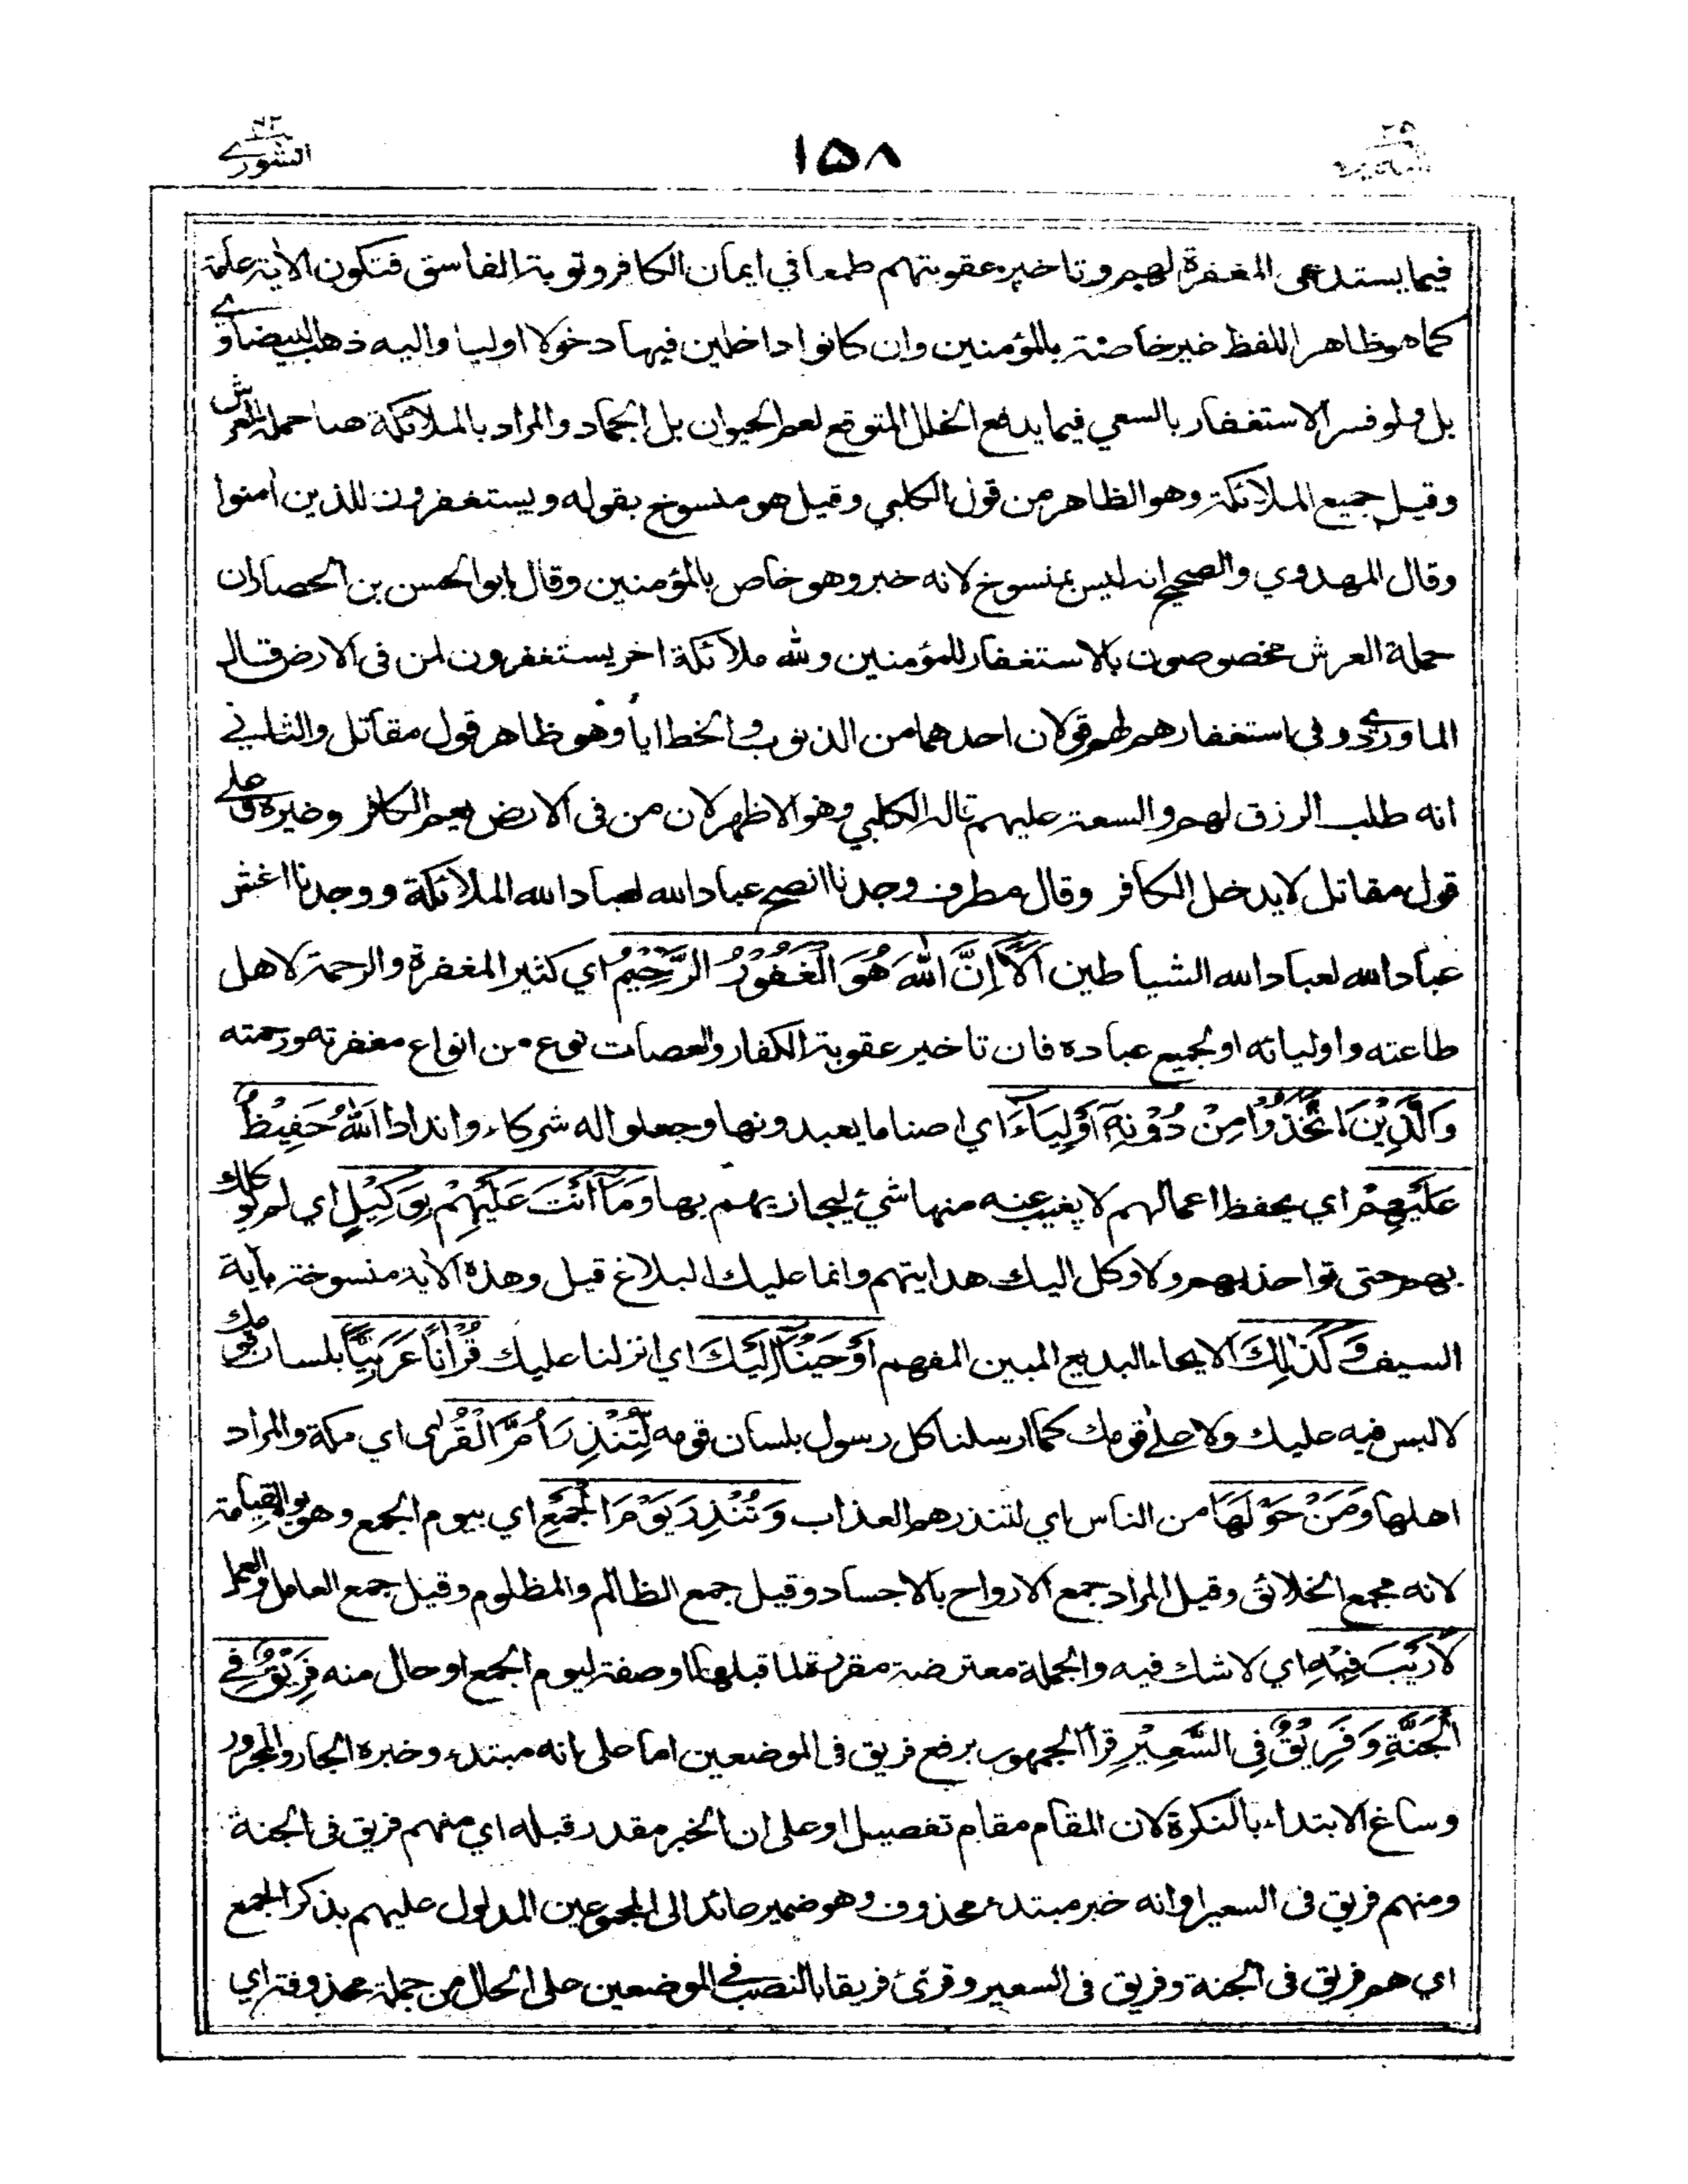 الشورى ٤٢
١٥٨
٢٥
فيما يستدعى المغفرة لهم وتاخير عقوبتهم طمعا في ايمان الكافر وتوبة الفاسق فتكون الآية عامة
كما هو ظاهر اللفظ غير خاصة بالمؤمنين وان كانوا داخلين فيها دخولا اوليا واليه ذهب البيضاوي
بل ولو فسر الاستغفار بالسعي فيما يدفع الخلل المتوقع لعم الحيوان بل الجماد والمراد بالملائكة هنا حملة العرش
وقيل جميع الملائكة وهو الظاهر من قول الكلبي وقيل هو منسوخ بقوله ويستغفرون للذين امنوا
وقال المهدوي والصحيح انه ليس بمنسوخ لانه خبر وهو خاص بالمؤمنين وقال ابو الحسن بن الحصار ان
حملة العرش مخصوصون بالاستغفار للمؤمنين ولله ملائكة اخر يستغفرون لمن فى الارض قال
الماوردي وفي استغفارهم لهم قولان احدهما من الذنوب والخطايا وهو ظاهر قول مقاتل والثاني
انه طلب الرزق لهم والسعة عليهم قاله الكلبي وهو الاظهر لان من فى الارض يعم الكافر وغيره وعلى
قول مقاتل لا يدخل الكافر وقال مطرف وجدنا انصح عباد الله لعباد الله الملائكة ووجدنا اغش
عباد الله لعباد الله الشياطين اَلَآ اِنَّ اللّٰهَ هُوَ الْغَفُوْرُ الرَّحِيْمُ اي كثير المغفرة والرحمة لاهل
طاعته واوليائه او لجميع عباده فان تاخير عقوبة الكفار والعصات نوع من انواع مغفرته ورحمته
وَالَّذِيْنَ اتَّخَذُوْا مِنْ دُوْنِهٖٓ اَوْلِيَآءَ اي اصناما يعبدونها وجعلوا له شركاء واندادا اَللّٰهُ حَفِيْظٌ
عَلَيْهِمْ اي يحفظ اعمالهم لا يغيب عنه منها شيئ ليجازيهم بها وَمَآ اَنْتَ عَلَيْهِمْ بِوَكِيْلٍ اي لم نوكلك
بهم حتى تواخذ بهم ولا وكل اليك هدايتهم وانما عليك البلاغ قيل وهذه الآية منسوخة بآية
السيف وَكَذٰلِكَ الايحاء البديع المبين المفهم اَوْحَيْنَآ اِلَيْكَ اي انزلنا عليك قُرْاٰنًا عَرَبِيًّا بلسان قومك
لا لبس فيه عليك ولا على قومك كما ارسلنا كل رسول بلسان قومه لِتُنْذِرَ اُمَّ الْقُرٰى اي مكة والمراد
اهلها وَمَنْ حَوْلَهَا من الناس اي لتنذرهم العذاب وَتُنْذِرَ يَوْمَ الْجَمْعِ اي بيوم الجمع وهو يوم القيامة
لانه مجمع الخلائق وقيل المراد جمع الارواح بالاجساد وقيل جمع الظالم والمظلوم وقيل جمع العامل والعمل
لَا رَيْبَ فِيْهِ اي لا شك فيه والجملة معترضة مقررة لما قبلها او صفة ليوم الجمع او حال منه فَرِيْقٌ فِي
الْجَنَّةِ وَفَرِيْقٌ فِى السَّعِيْرِ قرأ الجمهور برفع فريق فى الموضعين اما على انه مبتدء وخبره الجار والمجرور
وساغ الابتداء بالنكرة لان المقام مقام تفصيل او على ان الخبر مقدر قبله اي منهم فريق فى الجنة
ومنهم فريق فى السعير او انه خبر مبتدء محذوف وهو ضمير عائد الى المجموعين المدلول عليهم بذكر الجمع
اي هم فريق فى الجنة وفريق فى السعير وقرئ فريقا بالنصب في الموضعين على الحال من جملة محذوفة اي